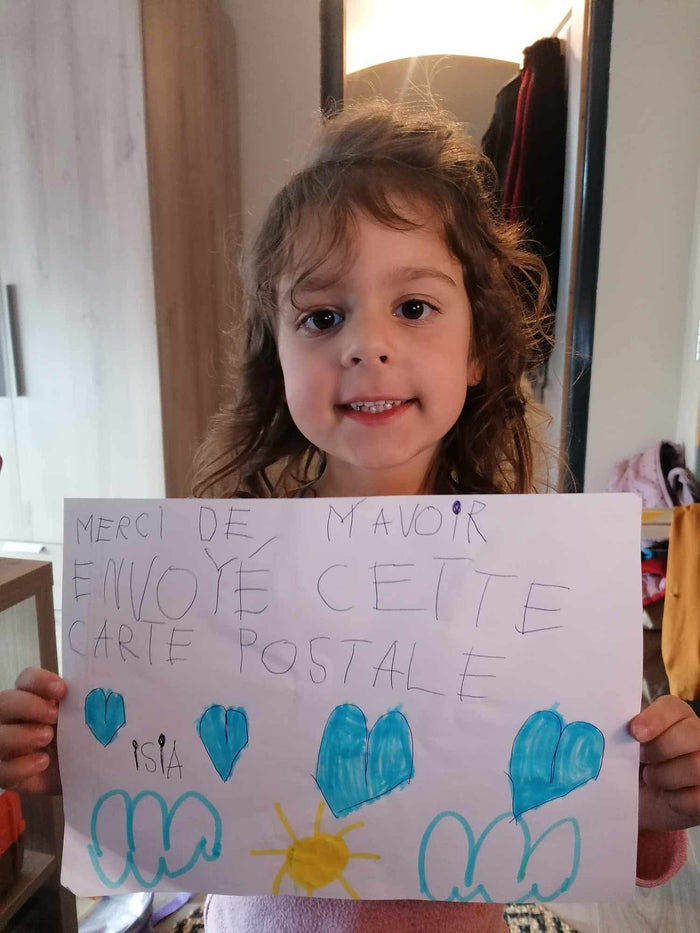 MERCI DE M'AVOIR
ENVOYÉ CETTE
CARTE POSTALE
ISIA